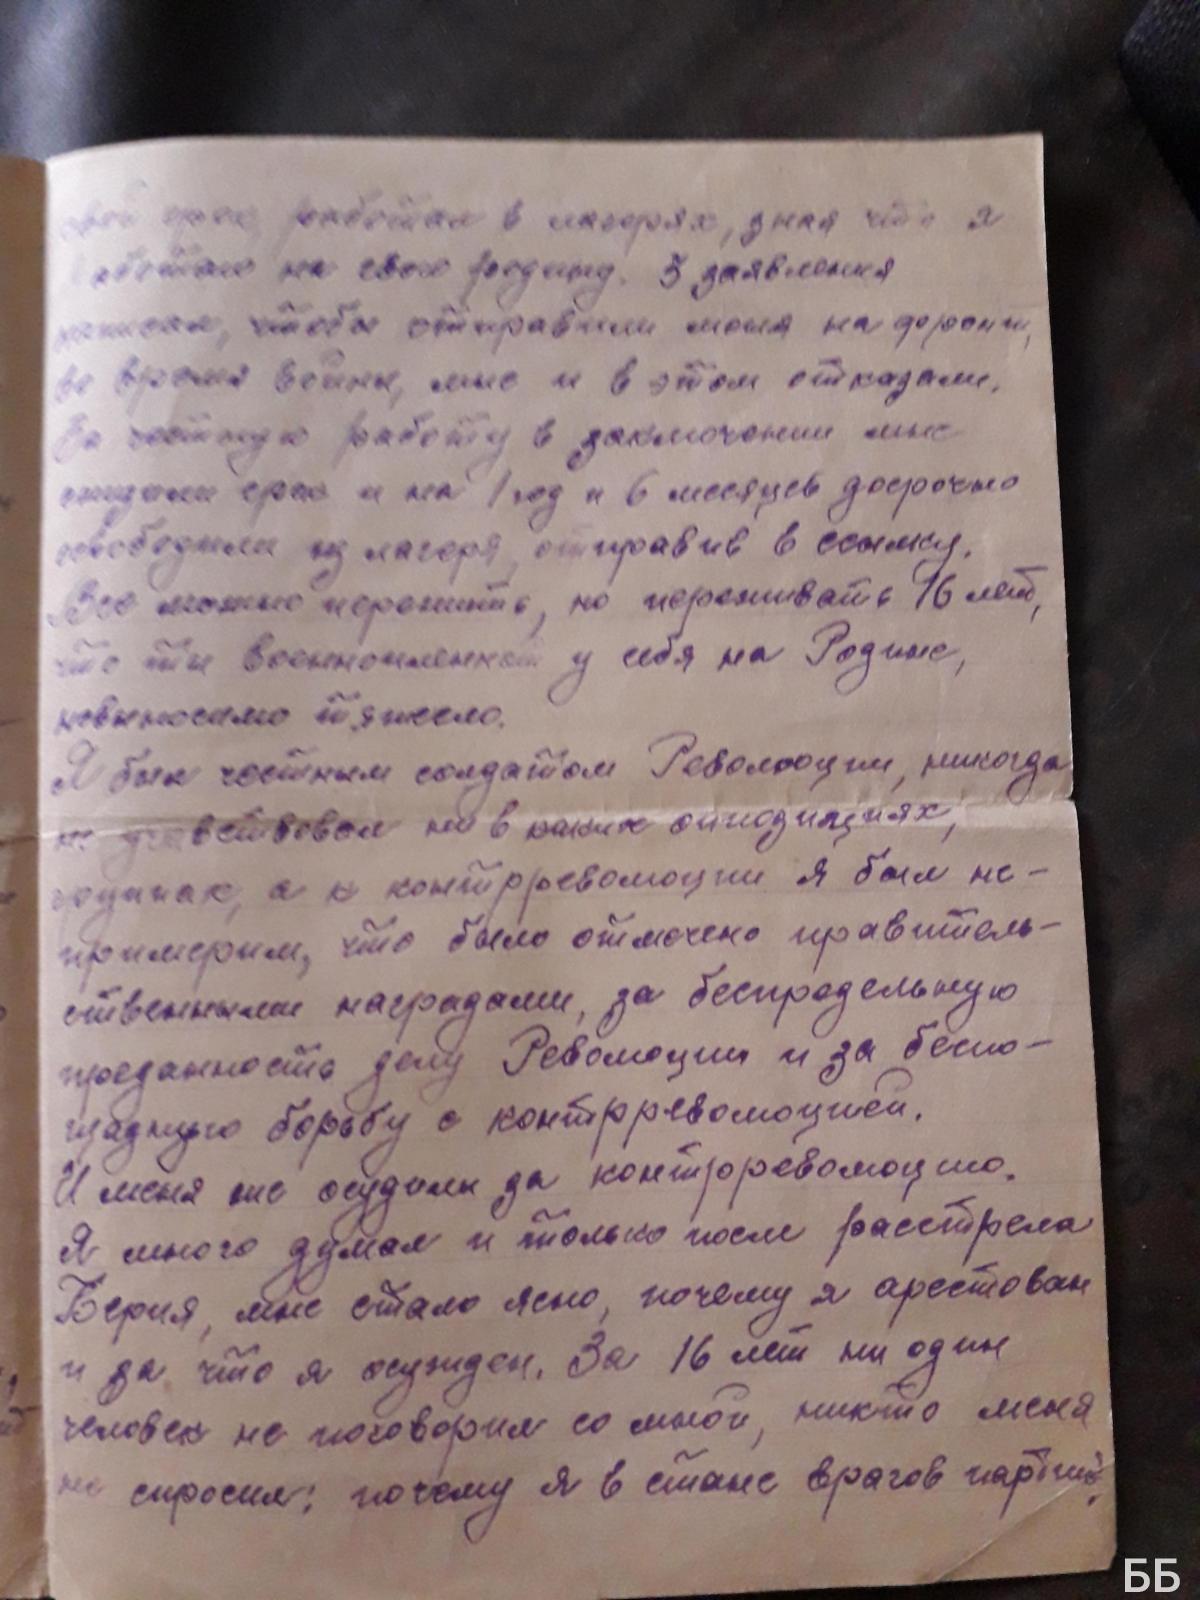 свой срок, работал в лагерях, зная что я
работаю на свою родину. 3 заявления
написал, чтобы отправили меня на фронт,
во время войны, мне и в этом отказали.
За честную работу в заключении мне
снизили срок и на 1 год и 6 месяцев досрочно
освободили из лагеря, отправив в ссылку.
Все можно пережить, но переживать 16 лет,
что ты военнопленный у себя на Родине,
невыносимо тяжело.
Я был честным солдатом Революции, никогда
не участвовал ни в каких оппозициях,
а к контрреволюции я был не-
примерим, что было отмечено правитель-
ственными наградами, за беспредельную
преданность делу Революции и за беспо-
щадную борьбу с контрреволюцией.
И меня же осудили за контрреволюцию.
Я много думал и только после расстрела
Берия, мне стало ясно, почему я арестован
и за что я осужден. За 16 лет ни один
человек не поговорил со мной, никто меня
не спросил: почему я в стане врагов партии?
ББ